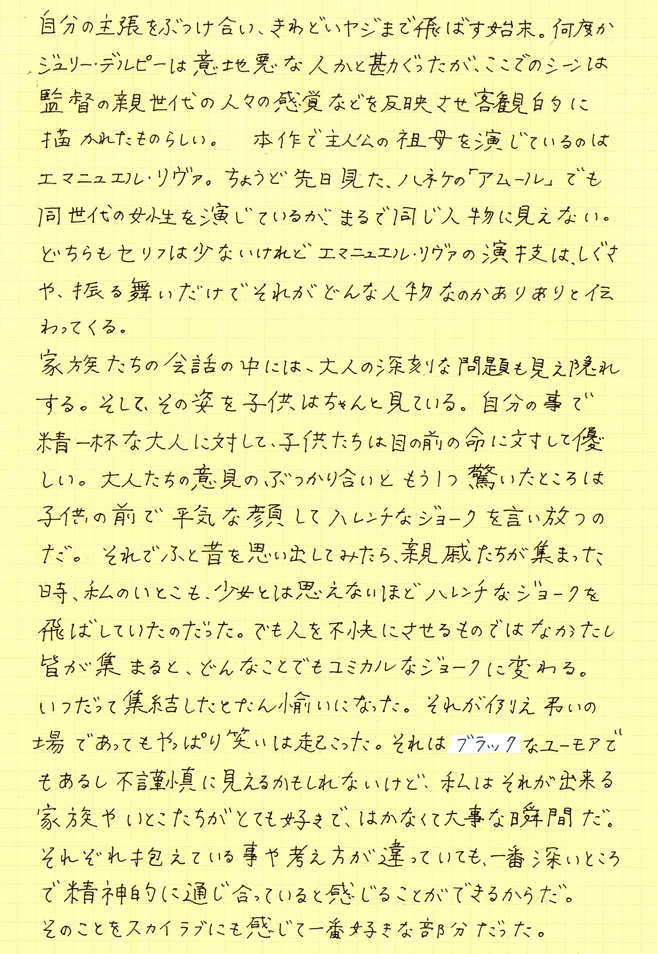 自分の主張をぶつけ合い、きわどいヤジまで飛ばす始末。何度か
ジュリー・デルピーは意地悪な人かと勘ぐったが、ここでのシーンは
監督の親世代の人々の感覚などを反映させ客観的に
描かれたものらしい。 本作で主人公の祖母を演じているのは
エマニュエル・リヴァ。ちょうど先日見た、ハネケの「アムール」でも
同世代の女性を演じているが、まるで同じ人物に見えない。
どちらもセリフは少ないけれどエマニュエル・リヴァの演技は、しぐさ
や、振る舞いだけでそれがどんな人物なのかありありと伝
わってくる。
家族たちの会話の中には、大人の深刻な問題も見え隠れ
する。そして、その姿を子供はちゃんと見ている。自分の事で
精一杯な大人に対して、子供たちは目の前の命に対して優
しい。大人たちの意見の、ぶつかり合いと もう1つ 驚いたところは
子供の前で平気な顔してハレンチなジョークを言い放つの
だ。それでふと昔を思い出してみたら、親戚たちが集まった
時、私のいとこも、少女とは思えないほどハレンチなジョークを
飛ばしていたのだった。でも人を不快にさせるものではなかったし
皆が集まると、どんなことでもコミカルなジョークに変わる。
いつだって集結したとたん愉いになった。それが例え弔いの
場であってもやっぱり笑いは起こった。それはブラックなユーモアで
もあるし不謹慎に見えるかもしれないけど、私はそれが出来る
家族やいとこたちがとても好きで、はかなくて大事な瞬間だ。
それぞれ抱えている事や考え方が違っていても、一番深いところ
で精神的に通じ合っていると感じることができるからだ。
そのことをスカイラブにも感じて一番好きな部分だった。